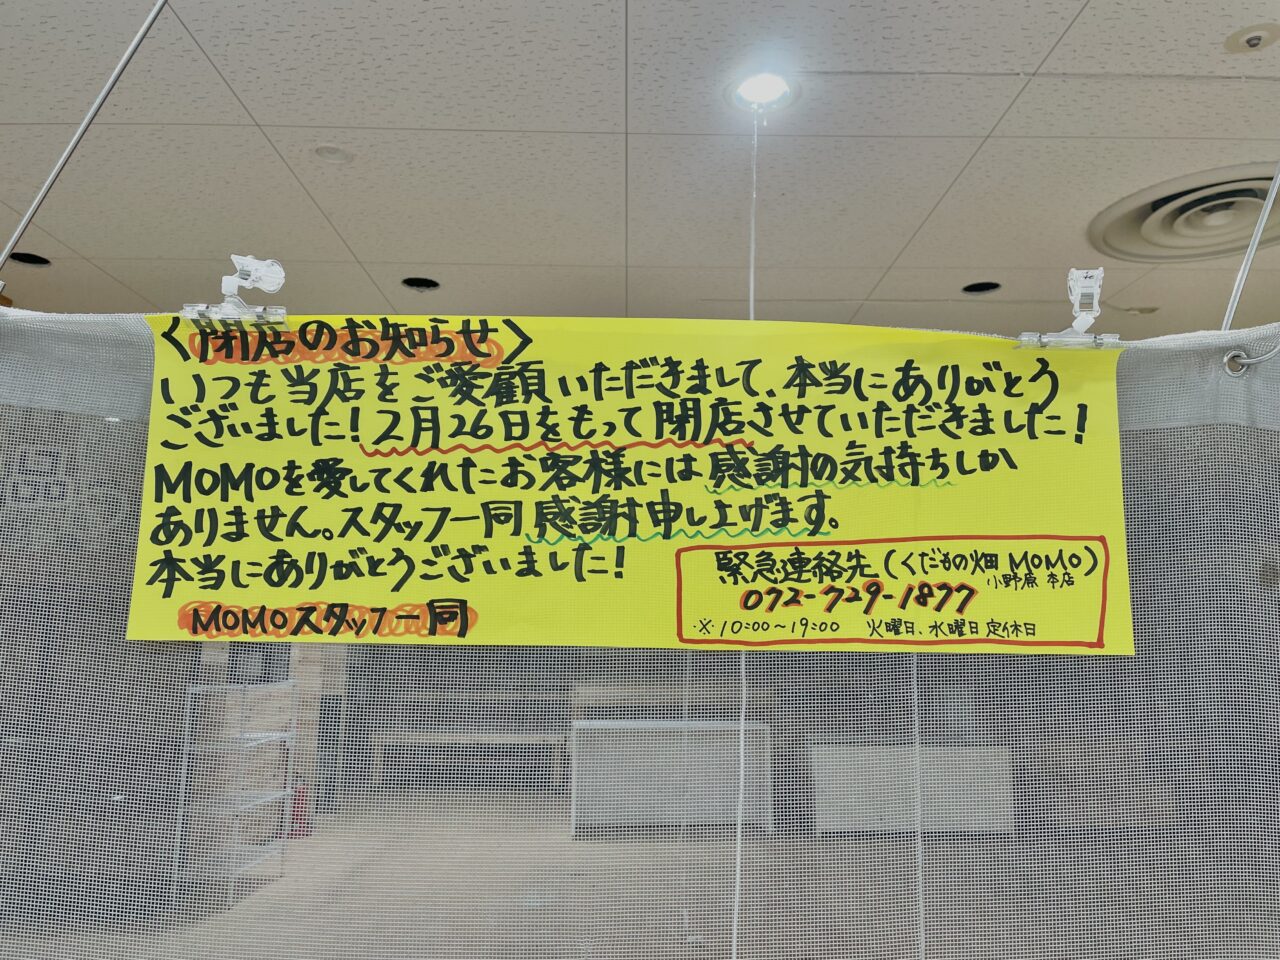 〈閉店のお知らせ〉
いつも当店をご愛顧いただきまして、本当にありがとう
ございました！2月26日をもって閉店させていただきました！
MOMOを愛してくれたお客様には感謝の気持ちしか
ありません。スタッフ一同感謝申し上げます。
本当にありがとうございました！
MOMOスタッフ一同
緊急連絡先(くだもの畑MOMO)
小野原本店
072-729-1877
※10:00～19:00 火曜日、水曜日定休日